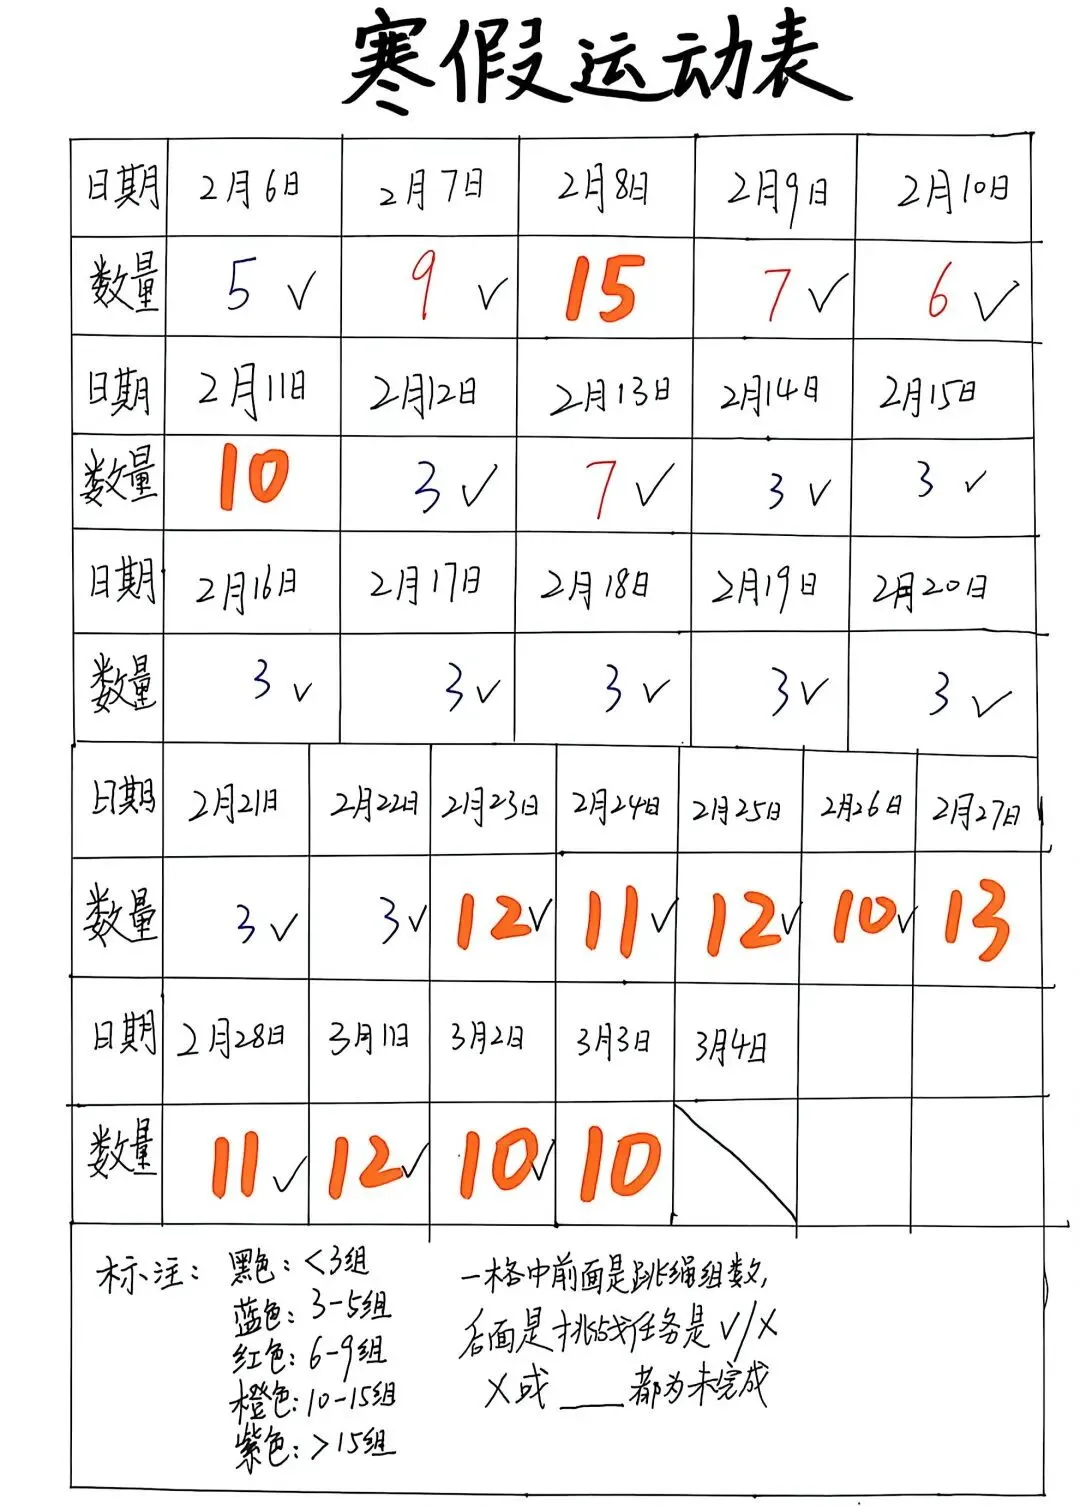 寒假运动表
日期 2月6日 2月7日 2月8日 2月9日 2月10日
数量 5 ✓ 9 ✓ 15 7 ✓ 6 ✓
日期 2月11日 2月12日 2月13日 2月14日 2月15日
数量 10 3 ✓ 7 ✓ 3 ✓ 3 ✓
日期 2月16日 2月17日 2月18日 2月19日 2月20日
数量 3 ✓ 3 ✓ 3 ✓ 3 ✓ 3 ✓
日期 2月21日 2月22日 2月23日 2月24日 2月25日 2月26日 2月27日
数量 3 ✓ 3 ✓ 12 ✓ 11 ✓ 12 ✓ 10 ✓ 13
日期 2月28日 3月1日 3月2日 3月3日 3月4日
数量 11 ✓ 12 ✓ 10 ✓ 10
标注：黑色：<3组
蓝色：3-5组
红色：6-9组
橙色：10-15组
紫色：>15组
一格中前面是跳绳组数，
后面是挑战任务是✓/×
×或____都为未完成